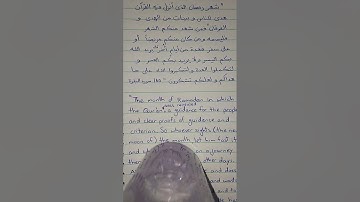 " شهر رمضان الذي أنزل فيه القرآن
هدى للناس و بينات من الهدى و
الفرقان فمن شهد منكم الشهر
فليصمه و من كان منكم مريضاً أو
على سفر فعدة من أيام أخر يريد الله
بكم اليسر ولا يريد بكم العسر و
لتكملوا العدة و لتكبروا الله على ما
هداكم و لعلكم تشكرون " 185 سورة البقرة
" The month of Ramadan in which
was revealed
the Quran a guidance for the people
and clear proofs of guidance and
criterion. So whoever sights (the new
moon of) the month, let him fast it
and on a journey
other days
and does
and to